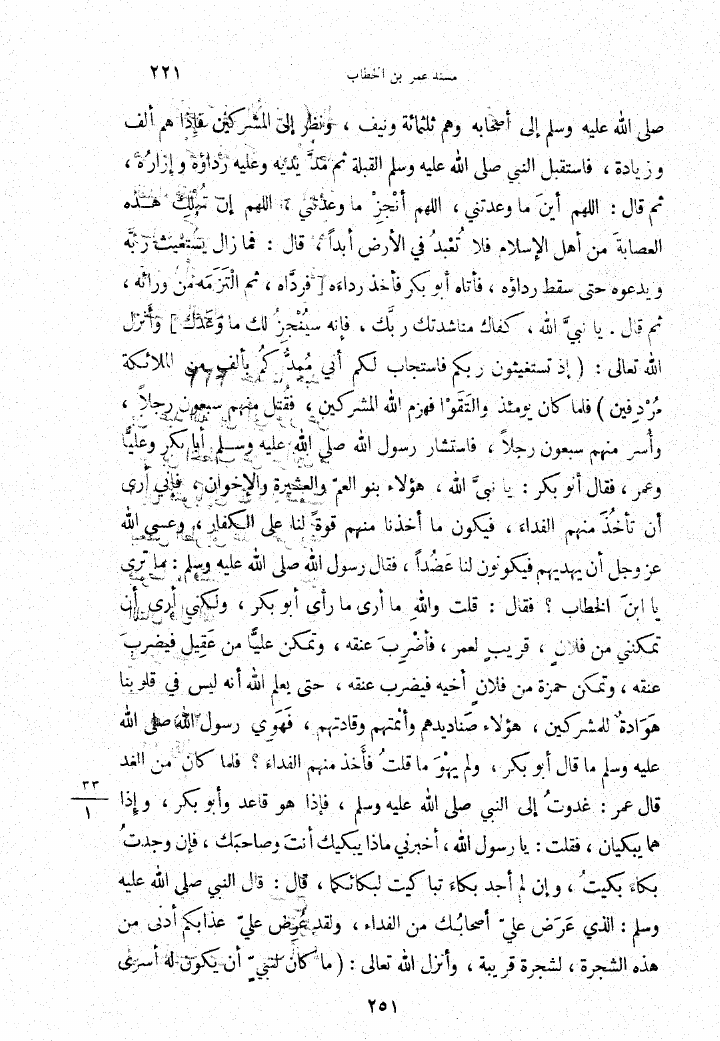 مسند عمر بن الخطاب ٢٢١
صلى الله عليه وسلم إلى أصحابه وهم ثلثمائة ونيف ، ونظر إلى المشركين فإذا هم ألف
وزيادة ، فاستقبل النبي صلى الله عليه وسلم القبلة ثم مَدَّ يديه وعليه رداؤه وإزارُه ،
ثم قال : اللهم أينَ ما وعدتني ، اللهم أنْجِزْ ما وعدتَني ، اللهم إن تُهلِكْ هـذه
العصابةَ من أهل الإسلام فلا تُعْبدُ في الأرض أبداً ، قال : فما زال يستغيث ربَّه
ويدعوه حتى سقط رداؤه ، فأتاه أبو بكر فأخذ رداءَه [ فردَّاه ، ثم الْتَزَمَه من ورائه ،
ثم قال . يا نبيَّ الله ، كفاك مناشدتك ربَّك ، فإنه سيُنْجِزُ لك ما وَعَدَك ] وأَنزل
الله تعالى : ( إذ تستغيثون ربكم فاستجاب لكم أني مُمِدُّكُم بألف من الملائكة
مُرْدِفين ) فلما كان يومئذ والتَقوْا فهزم الله المشركين ، فقُتل منهم سبعون رجلاً ،
وأُسر منهم سبعون رجلاً ، فاستشار رسول الله صلى الله عليه وسـلم أبا بكر وعليًّا
وعمر ، فقال أبو بكر : يا نبيَّ الله ، هؤلاء بنو العمّ والعشيرة والإخوان ، فإني أرى
أن تأخُذَ منهم الفداءَ ، فيكون ما أخذنا منهم قوةً لنا على الكفار ، وعسى الله
عز وجل أن يهديهم فيكونون لنا عَضُداً ، فقال رسول الله صلى الله عليه وسلم : ما ترى
يا ابنَ الخطاب ؟ فقال : قلت والله ما أرى ما رأى أبو بكر ، ولكني أرى أن
تمكنني من فلانٍ ، قريبٍ لعمر ، فأضْرِبَ عنقه ، وتمكن عليًّا من عَقِيل فيضربَ
عنقه ، وتمكن حمزة من فلانٍ أخيه فيضرب عنقه ، حتى يعلم الله أنه ليس في قلوبنا
هَوَادةٌ للمشركين ، هؤلاء صناديدهم وأئمتهم وقادتهم ، فَهَوِي رسول الله صلى الله
عليه وسلم ما قال أبو بكر ، ولم يهْوَ ما قلتُ فأَخذ منهم الفداءَ ؟ فلما كان من الغد
٣٣
١
قال عمر : غدوتُ إلى النبي صلى الله عليه وسلم ، فإذا هو قاعد وأبو بكر ، وإذا
هما يبكيان ، فقلت : يا رسول الله ، أخبرني ماذا يبكيك أنتَ وصاحبَك ، فإن وجدتُ
بكاءَ بكيتُ ، وإن لم أجد بكاءَ تباكيت لبكائكما ، قال : قال النبي صلى الله عليه
وسلم : الذي عَرَض عليّ أصحابُك من الفداء ، ولقد عُرِض عليّ عذابكم أدنى من
هذه الشجرة ، لشجرة قريبة ، وأنزل الله تعالى : ( ما كان لنبيّ أن يكون له أسرى
٢٥١